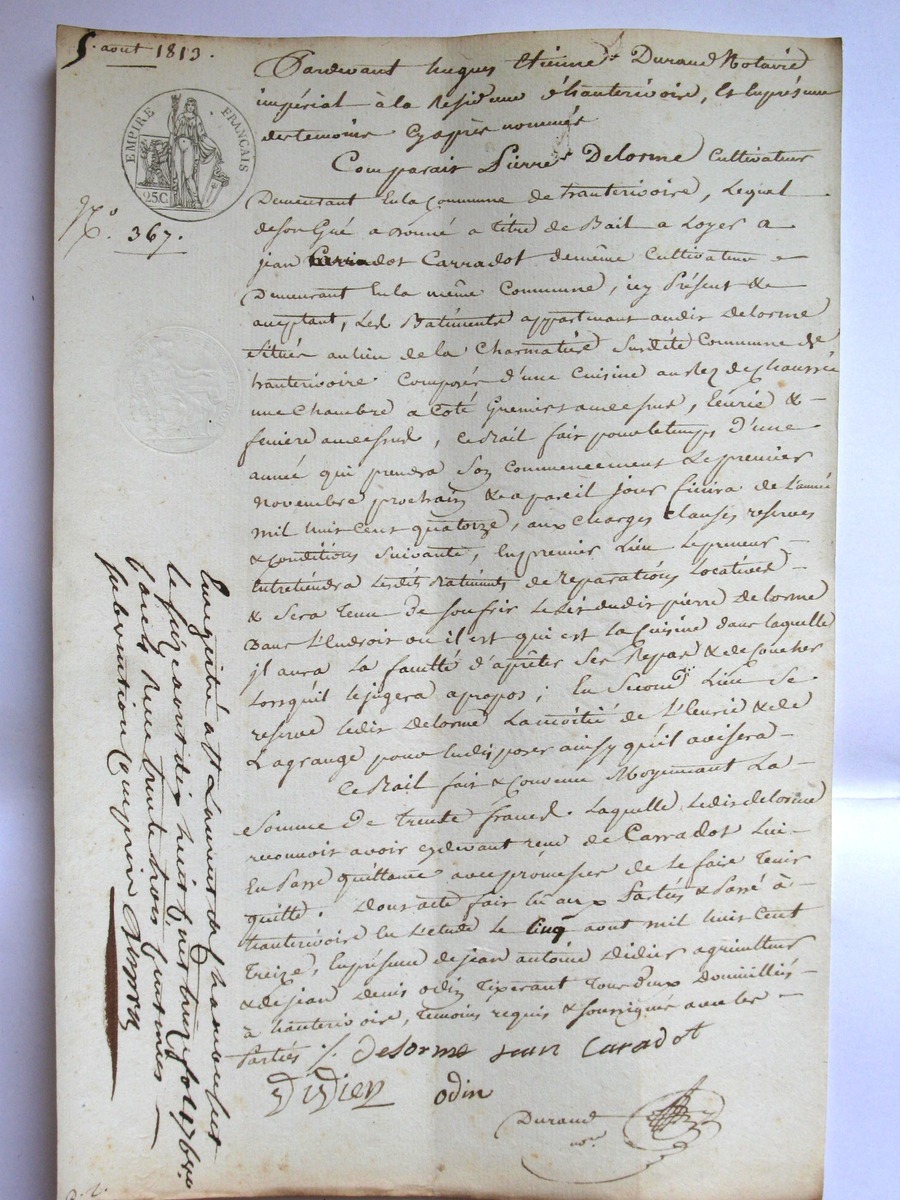 5. aout 1813.
EMPIRE FRANÇAIS
25.C
N.o 367.
Pardevant hugues Etienne Durand Notaire
impérial à la Residence d'hauterivoire, Et En présence
des temoins Cy après nommés
Comparait Pierre Delorme Cultivateur
Demeurant En la Commune de hauterivoire, Lequel
de son Gué a donné a Titre de Bail a Loyer a
jean Carradot de même Cultivateur
Demeurant En la même Commune, icy Présent &
acceptant, Les Batiments appartenant audit Delorme
Situés au lieu de la Charmatise Susdite Commune de
hauterivoire Composés d'une Cuisine au Rez de Chaussée
une Chambre a Coté Greniers au dessus, Ecurie &
feniere au dessus, Ce Bail fait pour le temps D'une
année qui prendra Son Commencement Le premier
Novembre prochain & a pareil jour finira de L'année
mil huit Cent quatorze, aux Charges Clauses reserves
& Conditions Suivante, En premier Lieu Le preneur
Entretiendra Lesdits Batiments de reparations Locatives
& Sera Tenu de Souffrir Le Lit dudit pierre delorme
Dans L'Endroit ou il est qui est La Cuisine dans laquelle
il aura La faculté d'aprêter Ses Repas & de Coucher
Lorsquil le jugera a propos; En Second Lieu Se
reserve Ledit Delorme La moitié de L'Ecurie & de
La grange pour En disposer ainsy qu'il avisera
Ce Bail fait & Convenu Moyennant La
Somme De trente francs Laquelle Ledit delorme
reconnoit avoir cy devant reçu de Carradot Lui
En Passe quittance avec promesse de le faire Tenir
quitte. Dont acte fait lu aux Parties & Passé à
hauterivoire En L'etude Le Cinq aout mil huit Cent
Treize, En présence de jean antoine Didier agriculteur
& de jean Denis odin Tixerant Tous Deux Domiciliés
à hauterivoire, Temoins requis & Soussignés avec les
Parties ·/.
Delorme jean Caradot
Didier odin
Durand
no.re
Enregistré à St Laurent de chamousset
le seize aout dix huit cent treize fol 176
reçu trente trois centimes
subvention comprise